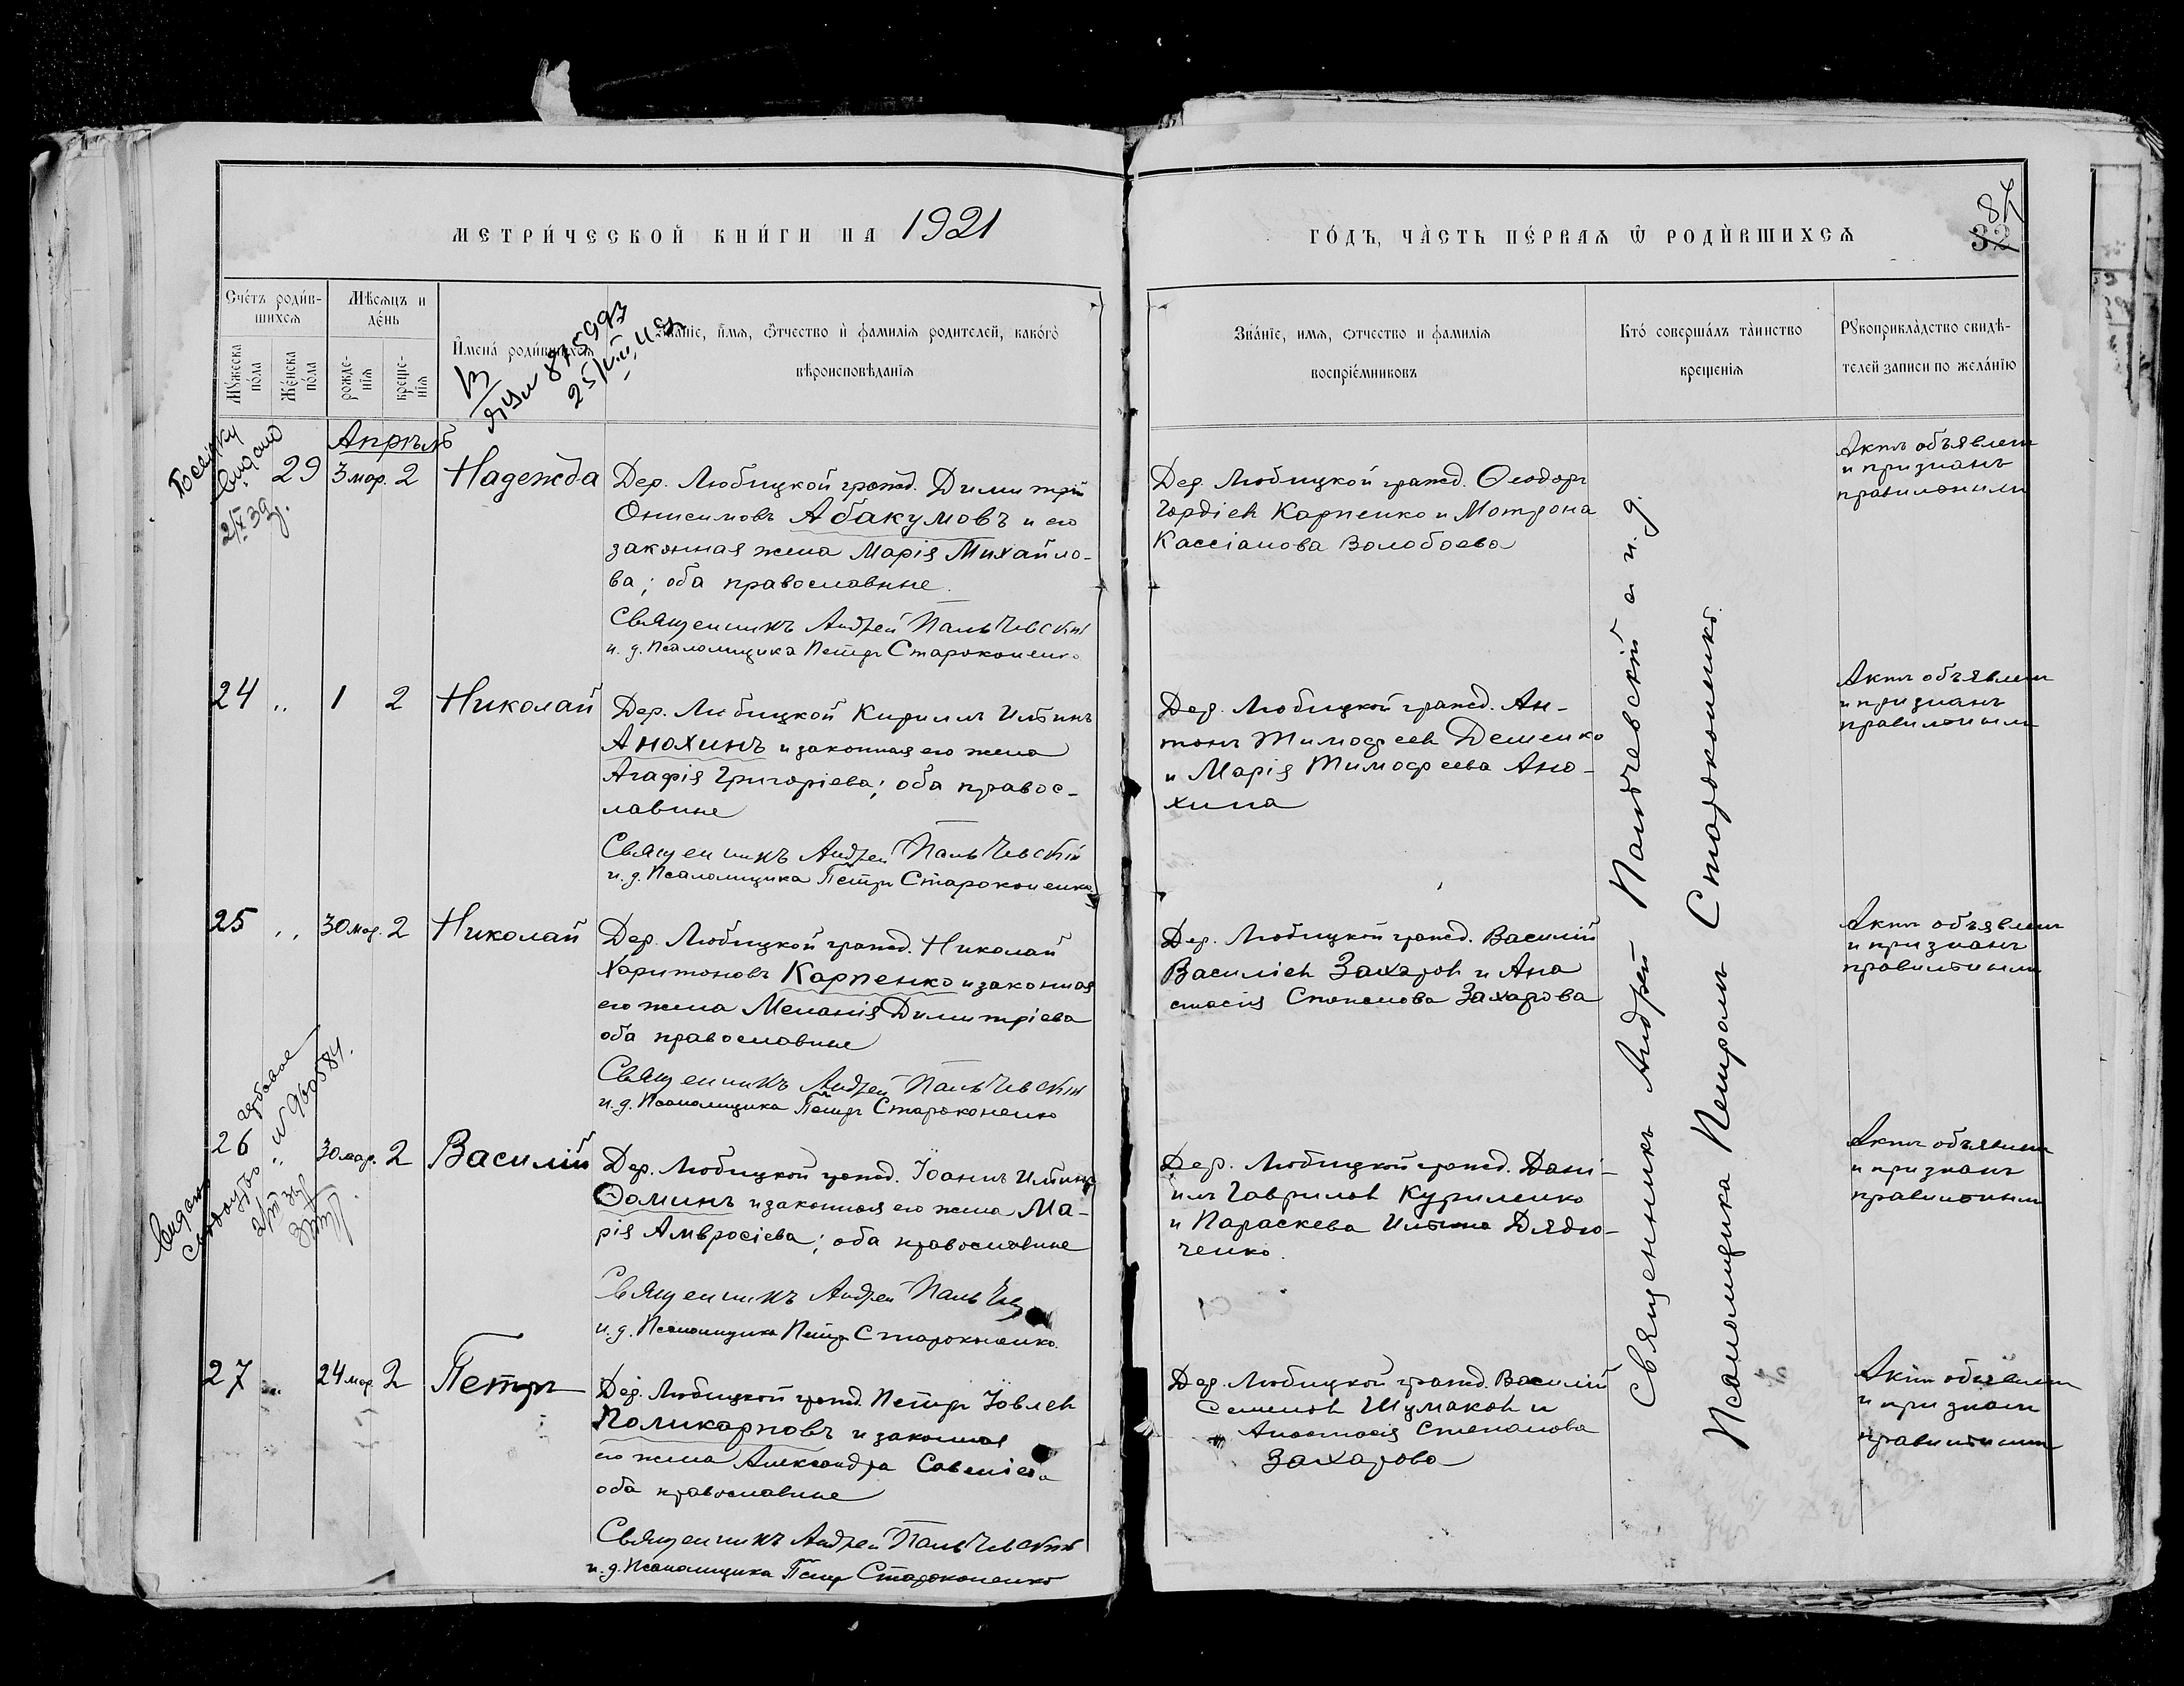 МЕТРИ́ЧЕСКОЙ КНИ́ГИ НА 1921
ГО́ДЪ, ЧА́СТЬ ПЕ́РВАѦ Ѿ РОДИ́ВШИХСѦ
87
33
Сче́тъ роди́в-
шихсѧ
Мꙋ́жеска
по́ла
Же́нска
по́ла
Мѣ́сѧцъ и
де́нь
рожде-
нїѧ
креще-
нїѧ
И҆мена̀ роди́вшихсѧ
Зва́нїе, и҆́мѧ, ѻ҆́тчество и҆ фамилїѧ родителей, како́гѡ
вѣроисповѣ́данїѧ
Зва́нїе, имѧ, ѻтчество и фамилїѧ
воспрїе́мниковъ
Кто̀ соверша́лъ та́инство
креще́нїѧ
Рꙋкоприкла́дство свидѣ́-
телей записи по жела́нїю
875993
Апрѣль
29 3 мар. 2 Надежда
Дер. Любицкой гражд. Димитрій
Онисимовъ Абакумовъ и его
законная жена Марія Михайло-
ва; оба православные.
Священникъ Андрей Пальчевскій
и. д. Псаломщика Петръ Староконенко
Дер. Любицкой гражд. Ѳеодоръ
Гордіев Карпенко и Мотрона
Кассіанова Волобоева
Актъ объявлен
и признанъ
правильным
24 „ 1 2 Николай
Дер. Любицкой Кириллъ Ильинъ
Анохинъ и законная его жена
Агафія Григоріева; оба правос-
лавные
Священникъ Андрей Пальчевскій
и. д. Псаломщика Петръ Староконенко
Дер. Любицкой гражд. Ан-
тонъ Тимофеев Деменко
и Марія Тимофеева Ано-
хина
Актъ объявлен
и признанъ
правильным
25 „ 30 мар. 2 Николай
Дер. Любицкой гражд. Николай
Харитоновъ Карпенко и законная
его жена Меланія Димитріева
оба православные
Священникъ Андрей Пальчевскій
и. д. Псаломщика Петръ Староконенко
Дер. Любицкой гражд. Василій
Василіев Захаров и Ана
стасія Степанова Захарова
Актъ объявлен
и признанъ
правильным
N 960584.
26 „ 30 мар. 2 Василій
Дер. Любицкой гражд. Іоаннъ Ильинъ
Ѳоминъ и законная его жена Ма-
рія Амвросіева; оба православные
Священникъ Андрей
и. д. Псаломщика Петръ Староконенко.
Дер. Любицкой гражд. Дані-
илъ Гаврилов Куриленко
и Параскева Ильина Дядю-
ченко.
Актъ объявлен
и признанъ
правильным
27 „ 24 мар. 2 Петръ
Дер. Любицкой гражд. Петръ Іовлев
Поликарповъ и законная
его жена Александра
оба православные
Священникъ Андрей Пальчевскій
и. д. Псаломщика Петръ Староконенко
Дер. Любицкой гражд. Василій
Семенов Шумаков и
Анастасія Степанова
Захарова
Актъ объявлен
и признан
правильным
Священникъ Андрей Пальчевскій и и. д.
Псаломщика Петръ Староконенко.